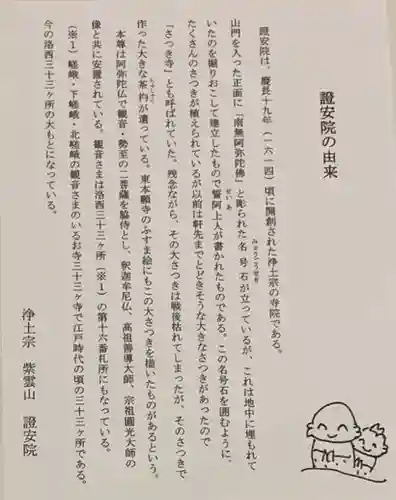 證安院の由来
證安院は、慶長十九年（一六一四）頃に開創された浄土宗の寺院である。
山門を入った正面に「南無阿弥陀佛」と彫られた名号石が立っているが、これは地中に埋もれて
みょうごうせき
いたのを掘りおこして建立したもので誓阿上人が書かれたものである。この名号石を囲むように、
せいあ
たくさんのさつきが植えられているが以前は軒先までとどきそうな大きなさつきがあったので
「さつき寺」とも呼ばれていた。残念ながら、その大さつきは戦後枯れてしまったが、そのさつきで
作った大きな茶杓が遺っている。東本願寺のふすま絵にもこの大さつきを描いたものがあるという。
本尊は阿弥陀仏で観音・勢至の二菩薩を脇侍とし、釈迦牟尼仏、高祖善導大師、宗祖圓光大師の
像と共に安置されている。観音さまは洛西三十三ヶ所（※１）の第十六番札所にもなっている。
（※１）嵯峨、下嵯峨・北嵯峨の観音さまのいるお寺三十三ヶ寺で江戸時代の頃の三十三ヶ所である。
今の洛西三十三ヶ所の大もとになっている。
浄土宗　紫雲山　證安院